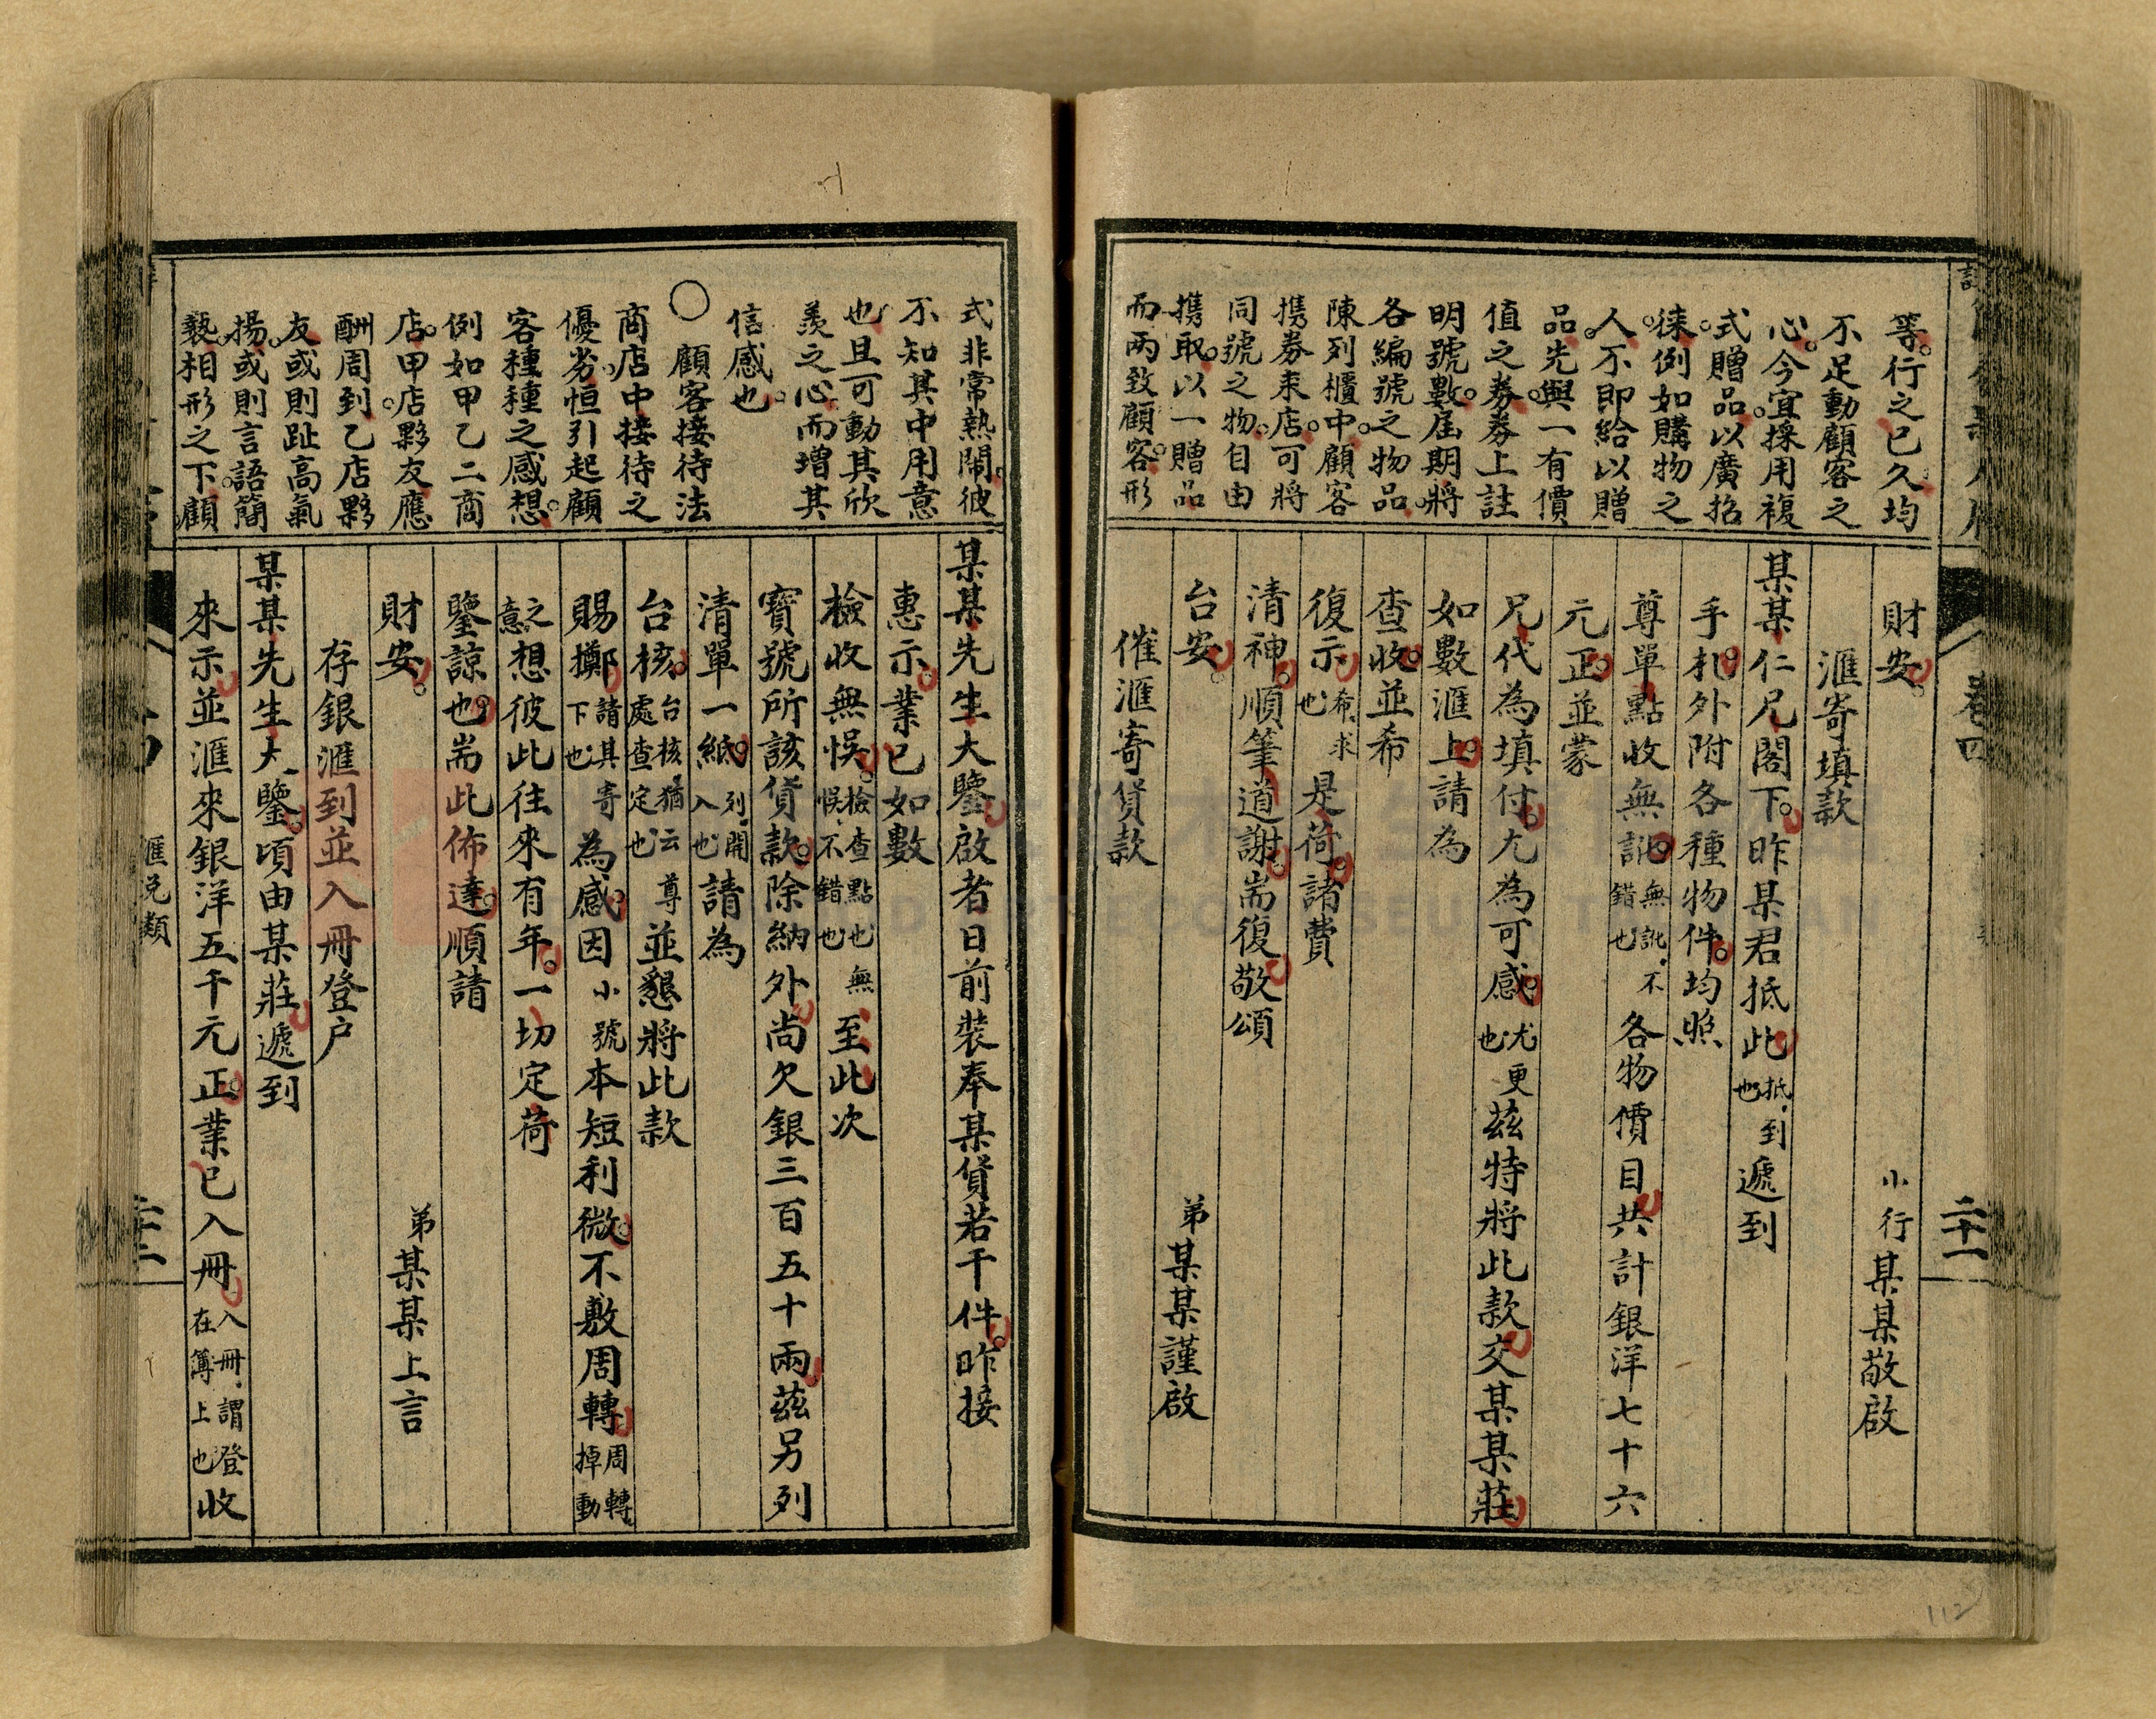 等。行之已久。均
不足動顧客之
心。今宜採用複
式贈品。以廣招
徠。例如購物之
人。不即給以贈
品。先與一有價
值之券。券上註
明號數。屆期將
各編號之物品。
陳列櫃中。顧客
携券來店。可將
同號之物。自由
携取。以一贈品
而兩致顧客。形
財安。 小行某某敬啟
滙寄填款
某某仁兄閣下。昨某君抵此抵、到也遞到
手札。外附各種物件。均照
尊單點收無訛。無訛、不錯也各物價目共計銀洋七十六
元正。並蒙
兄代為填付。尤為可感。尤更也茲特將此款交某某莊
如數滙上。請為
查收。並希
復示希、求也是荷。諸費
清神。順筆道謝。耑復敬頌
台安。 弟某某謹啟
催滙寄貨款
卷四
二十一
式非常熱鬧。彼
不知其中用意
也。且可動其欣
羨之心。而增其
信感也。
〇顧客接待法
商店中接待之
優劣。恒引起顧
客種種之感想。
例如甲乙二商
店。甲店夥友應
酬周到。乙店夥
友或則趾高氣
揚。或則言語簡
褻。相形之下。顧
某某先生大鑒啟者日前裝奉某貨若干件。昨接
惠示。業已如數
檢收無悞。檢查點也無悞、不錯也至此次
寶號所該貨款。除納外尚欠銀三百五十兩茲另列
清單一紙。列、開入也請為
台核。台核、猶云尊處查定也並懇將此款
賜擲請其寄下也為感。因小號本短利微。不敷周轉周轉、掉動
之意想彼此往來有年。一切定荷
鑒諒也。耑此佈達。順請
財安。 弟某某上言
存銀滙到並入冊登户
某某先生大鑒。頃由某莊遞到
來示並滙來銀洋五千元正。業已入冊入冊、謂登在簿上也收
滙兑類